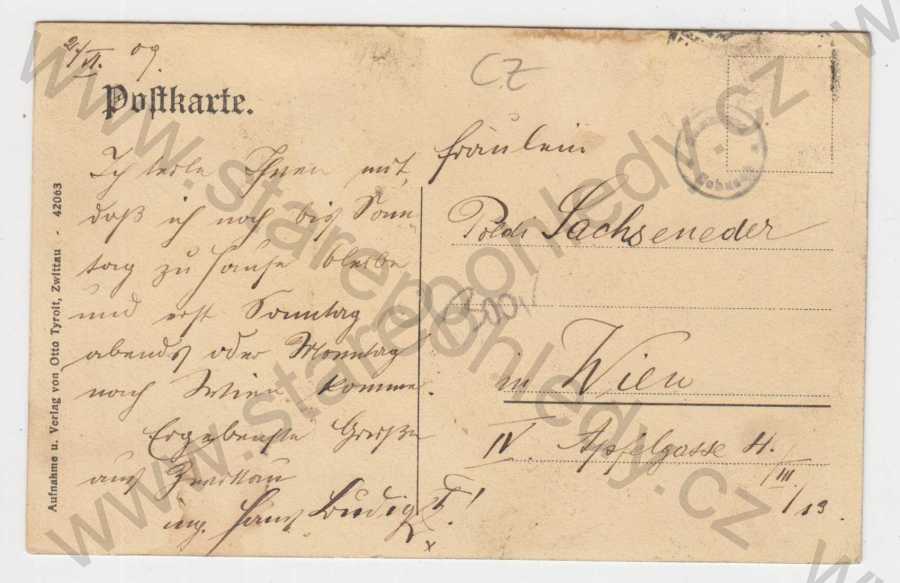 2/VI. 09.
Postkarte.
CZ
Ich teile Ihnen mit,
daß ich noch bis Sonn
tag zu Hause bleibe
und erst Sonntag
abends oder Monntag
nach Wien komme.
Ergebenste Grüße
aus
ing. Hans
Fräulein
Poldi Sachseneder
in Wien
IV. Apfelgasse 4.
/III.
/13.
Aufnahme u. Verlag von Otto Tyrolt, Zwittau - 42063
www.starepohledy.cz
www.starepohledy.cz